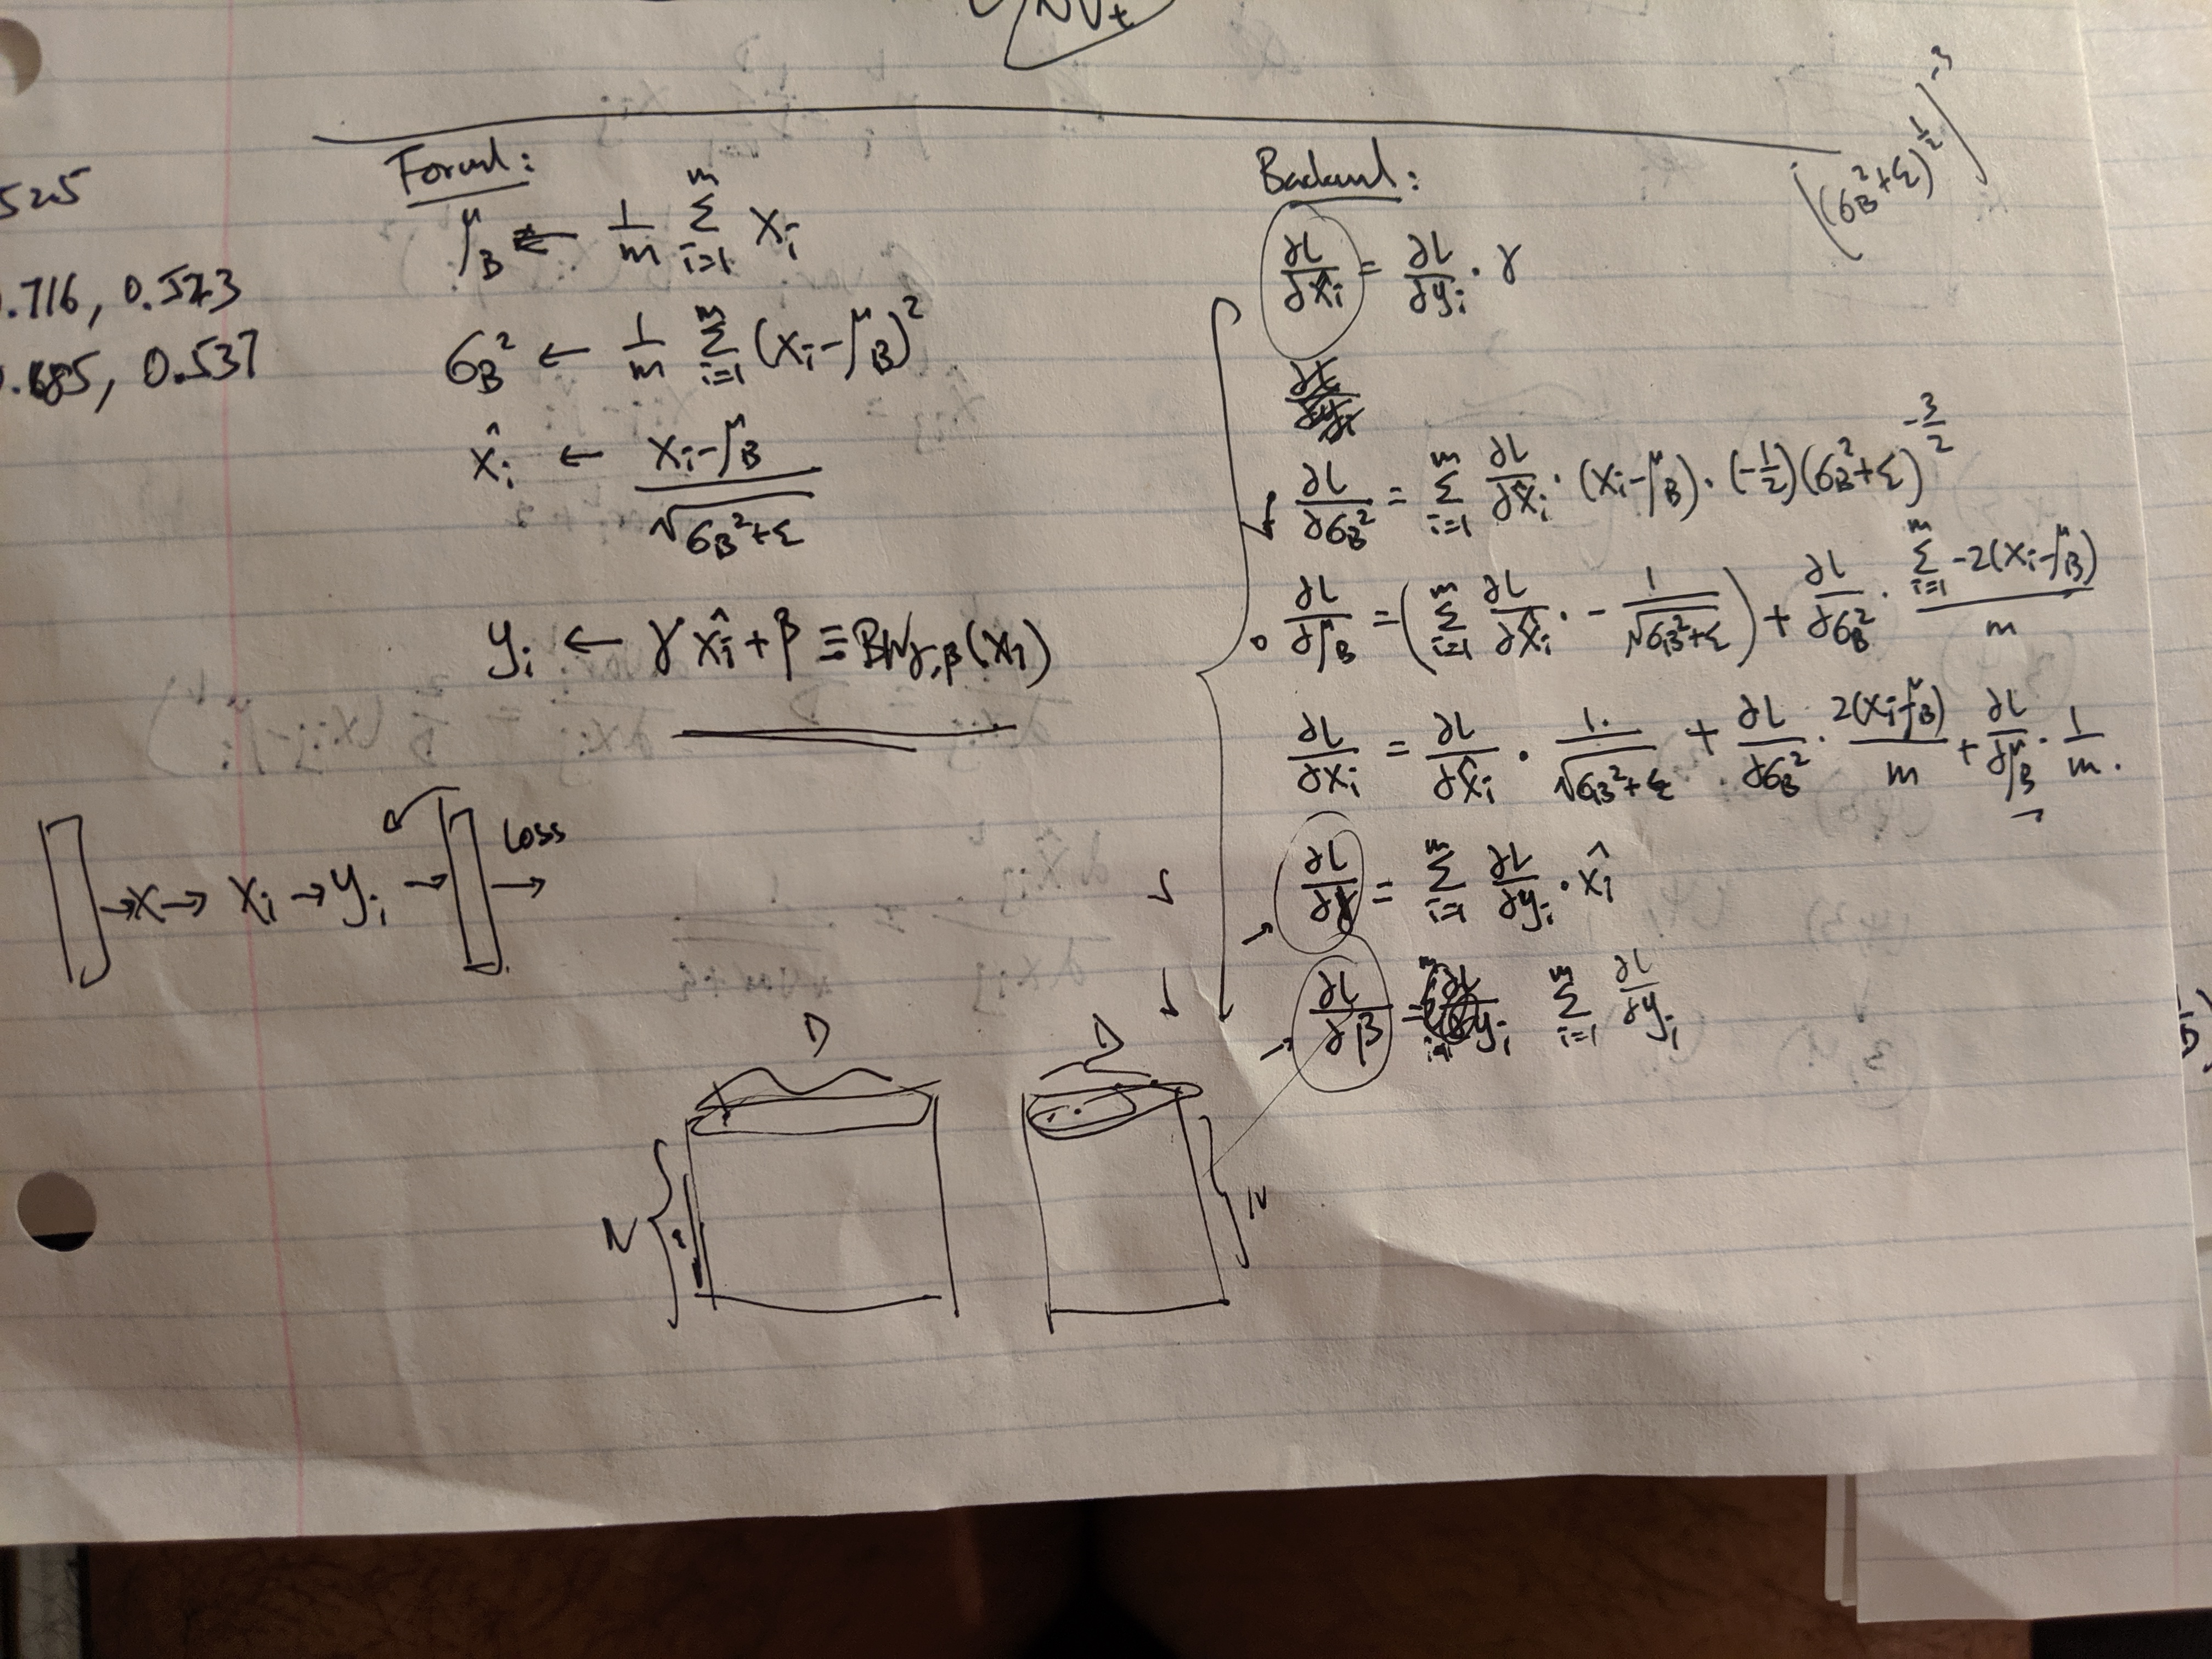 525
.716, 0.543
.685, 0.537
Forwd:
μB ← 1/m Σ_{i=1}^{m} xi
σB² ← 1/m Σ_{i=1}^{m} (xi - μB)²
x̂i ← (xi - μB) / √(σB²+ε)
yi ← γ x̂i + β ≡ BNγ,β(xi)
→ x → xi → yi → →
N
Loss
N
D
D
N
Backwd:
∂L/∂x̂i = ∂L/∂yi · γ
∂L/∂σB² = Σ_{i=1}^{m} ∂L/∂x̂i · (xi - μB) · (-1/2)(σB²+ε)^{-3/2}
∂L/∂μB = (Σ_{i=1}^{m} ∂L/∂x̂i · - 1/√(σB²+ε)) + ∂L/∂σB² · Σ_{i=1}^{m} -2(xi - μB) / m
∂L/∂xi = ∂L/∂x̂i · 1/√(σB²+ε) + ∂L/∂σB² · 2(xi - μB)/m + ∂L/∂μB · 1/m .
→ ∂L/∂γ = Σ_{i=1}^{m} ∂L/∂yi · x̂i
→ ∂L/∂β = Σ_{i=1}^{m} ∂L/∂yi
(σB²+ε)^{1/2}